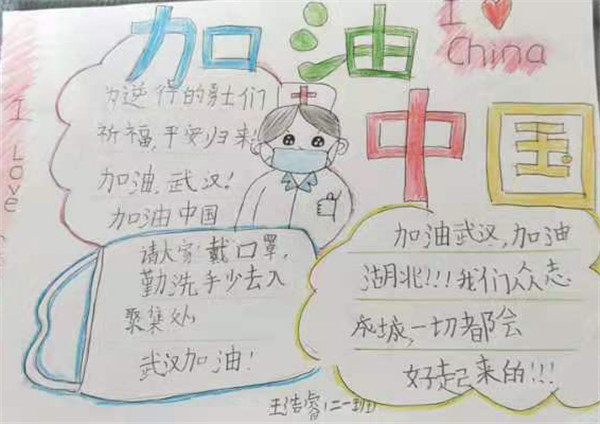 加油
中国
I ❤
China
I Love
为逆行的勇士们
祈福,平安归来
加油,武汉!
加油中国
请大家戴口罩,
勤洗手少去人
聚集处
武汉加油!
加油武汉,加油
湖北!!!我们众志
成城,一切都会
好起来的!!!
王浩睿(二一班)